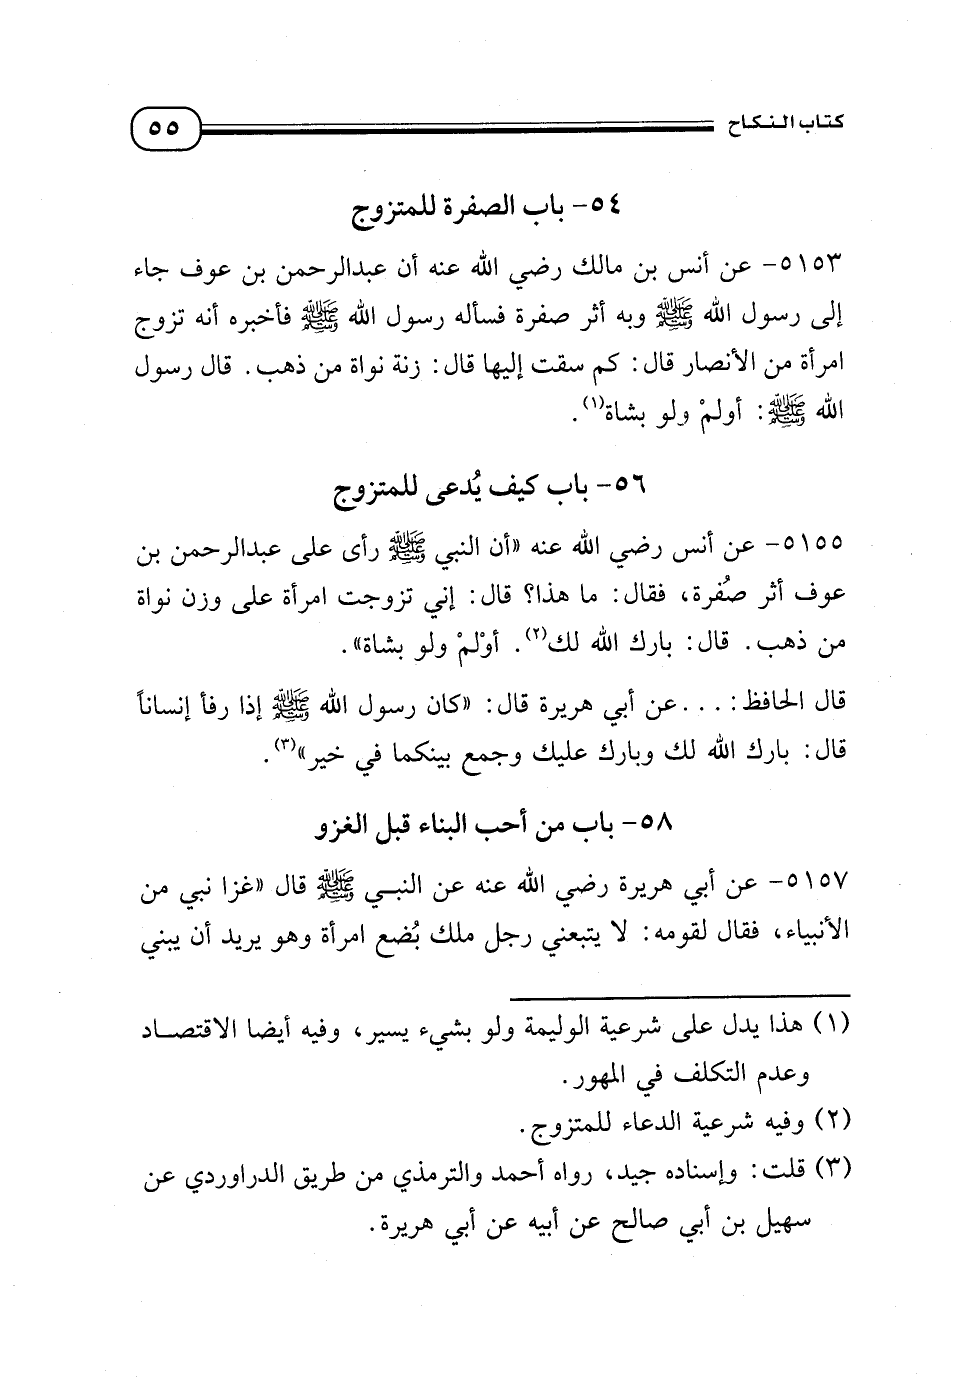 كتاب النكاح
٥٥
٥٤- باب الصفرة للمتزوج
٥١٥٣- عن أنس بن مالك رضي الله عنه أن عبدالرحمن بن عوف جاء
إلى رسول الله ﷺ وبه أثر صفرة فسأله رسول الله ﷺ فأخبره أنه تزوج
امرأة من الأنصار قال: كم سقت إليها قال: زنة نواة من ذهب. قال رسول
الله ﷺ: أولمْ ولو بشاة(١).
٥٦- باب كيف يُدعى للمتزوج
٥١٥٥- عن أنس رضي الله عنه «أن النبي ﷺ رأى على عبدالرحمن بن
عوف أثر صُفرة، فقال: ما هذا؟ قال: إني تزوجت امرأة على وزن نواة
من ذهب. قال: بارك الله لك(٢). أوْلمْ ولو بشاة».
قال الحافظ: ... عن أبي هريرة قال: «كان رسول الله ﷺ إذا رفأ إنساناً
قال: بارك الله لك وبارك عليك وجمع بينكما في خير»(٣).
٥٨- باب من أحب البناء قبل الغزو
٥١٥٧- عن أبي هريرة رضي الله عنه عن النبـي ﷺ قال «غزا نبي من
الأنبياء، فقال لقومه: لا يتبعني رجل ملك بُضع امرأة وهو يريد أن يبني
(١) هذا يدل على شرعية الوليمة ولو بشيء يسير، وفيه أيضا الاقتصـاد
وعدم التكلف في المهور.
(٢) وفيه شرعية الدعاء للمتزوج.
(٣) قلت: وإسناده جيد، رواه أحمد والترمذي من طريق الدراوردي عن
سهيل بن أبي صالح عن أبيه عن أبي هريرة.